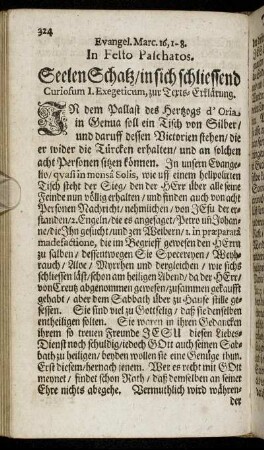 324
Evangel. Marc. 16, 1-8.
In Festo Paschatos.
Seelen Schatz/ in sich schliessend
Curiosum I. Exegeticum, zur Texts-Erklärung.
IN dem Pallast des Hertzogs d' Oria,
in Genua soll ein Tisch von Silber/
und daruff dessen Victorien stehen/ die
er wider die Türcken erhalten/ und an solchen
acht Personen sitzen können. In unserm Evange-
lio/ quasi in mensâ Solis, wie uff einem helipolitẽ
Tisch steht der Sieg/ den der HErr über alle seine
Feinde nun völlig erhalten/ und finden auch von acht
Personen Nachricht/ nehmlichen/ von JEsu der er-
standen/ 2. Engeln/ die es angesagt/ Petro uñ Johan-
ne/ die Jhn gesucht/ und 3en Weibern/ 1. in præparatâ
madefactione, die im Begrieff gewesen den HErrn
zu salben/ dessentwegen Sie Specereyen/ Weyh-
rauch/ Aloe/ Myrrhen und dergleichen/ wie sichs
schliessen läst/ schon am heiligen Abend/ da der HErr/
von Creutz abgenommen gewesen/ zusammen gekaufft
gehabt/ aber dem Sabbath über zu Hause stille ge-
sessen. Sie sind viel zu Gottselig/ daß sie denselben
entheiligen solten. Sie waren in ihren Gedancken
ihrem so treuen Freunde JESU diesen Liebes-
Dienst noch schuldig/ iedoch GOtt auch seinen Sab-
bath zu heiligen/ beyden wollen sie eine Genüge thun.
Erst diesem/ hernach jenem. Wer es recht mit GOtt
meynet/ findet schon Rath/ daß demselben an seiner
Ehre nichts abgehe. Vermuthlich wird während-
der